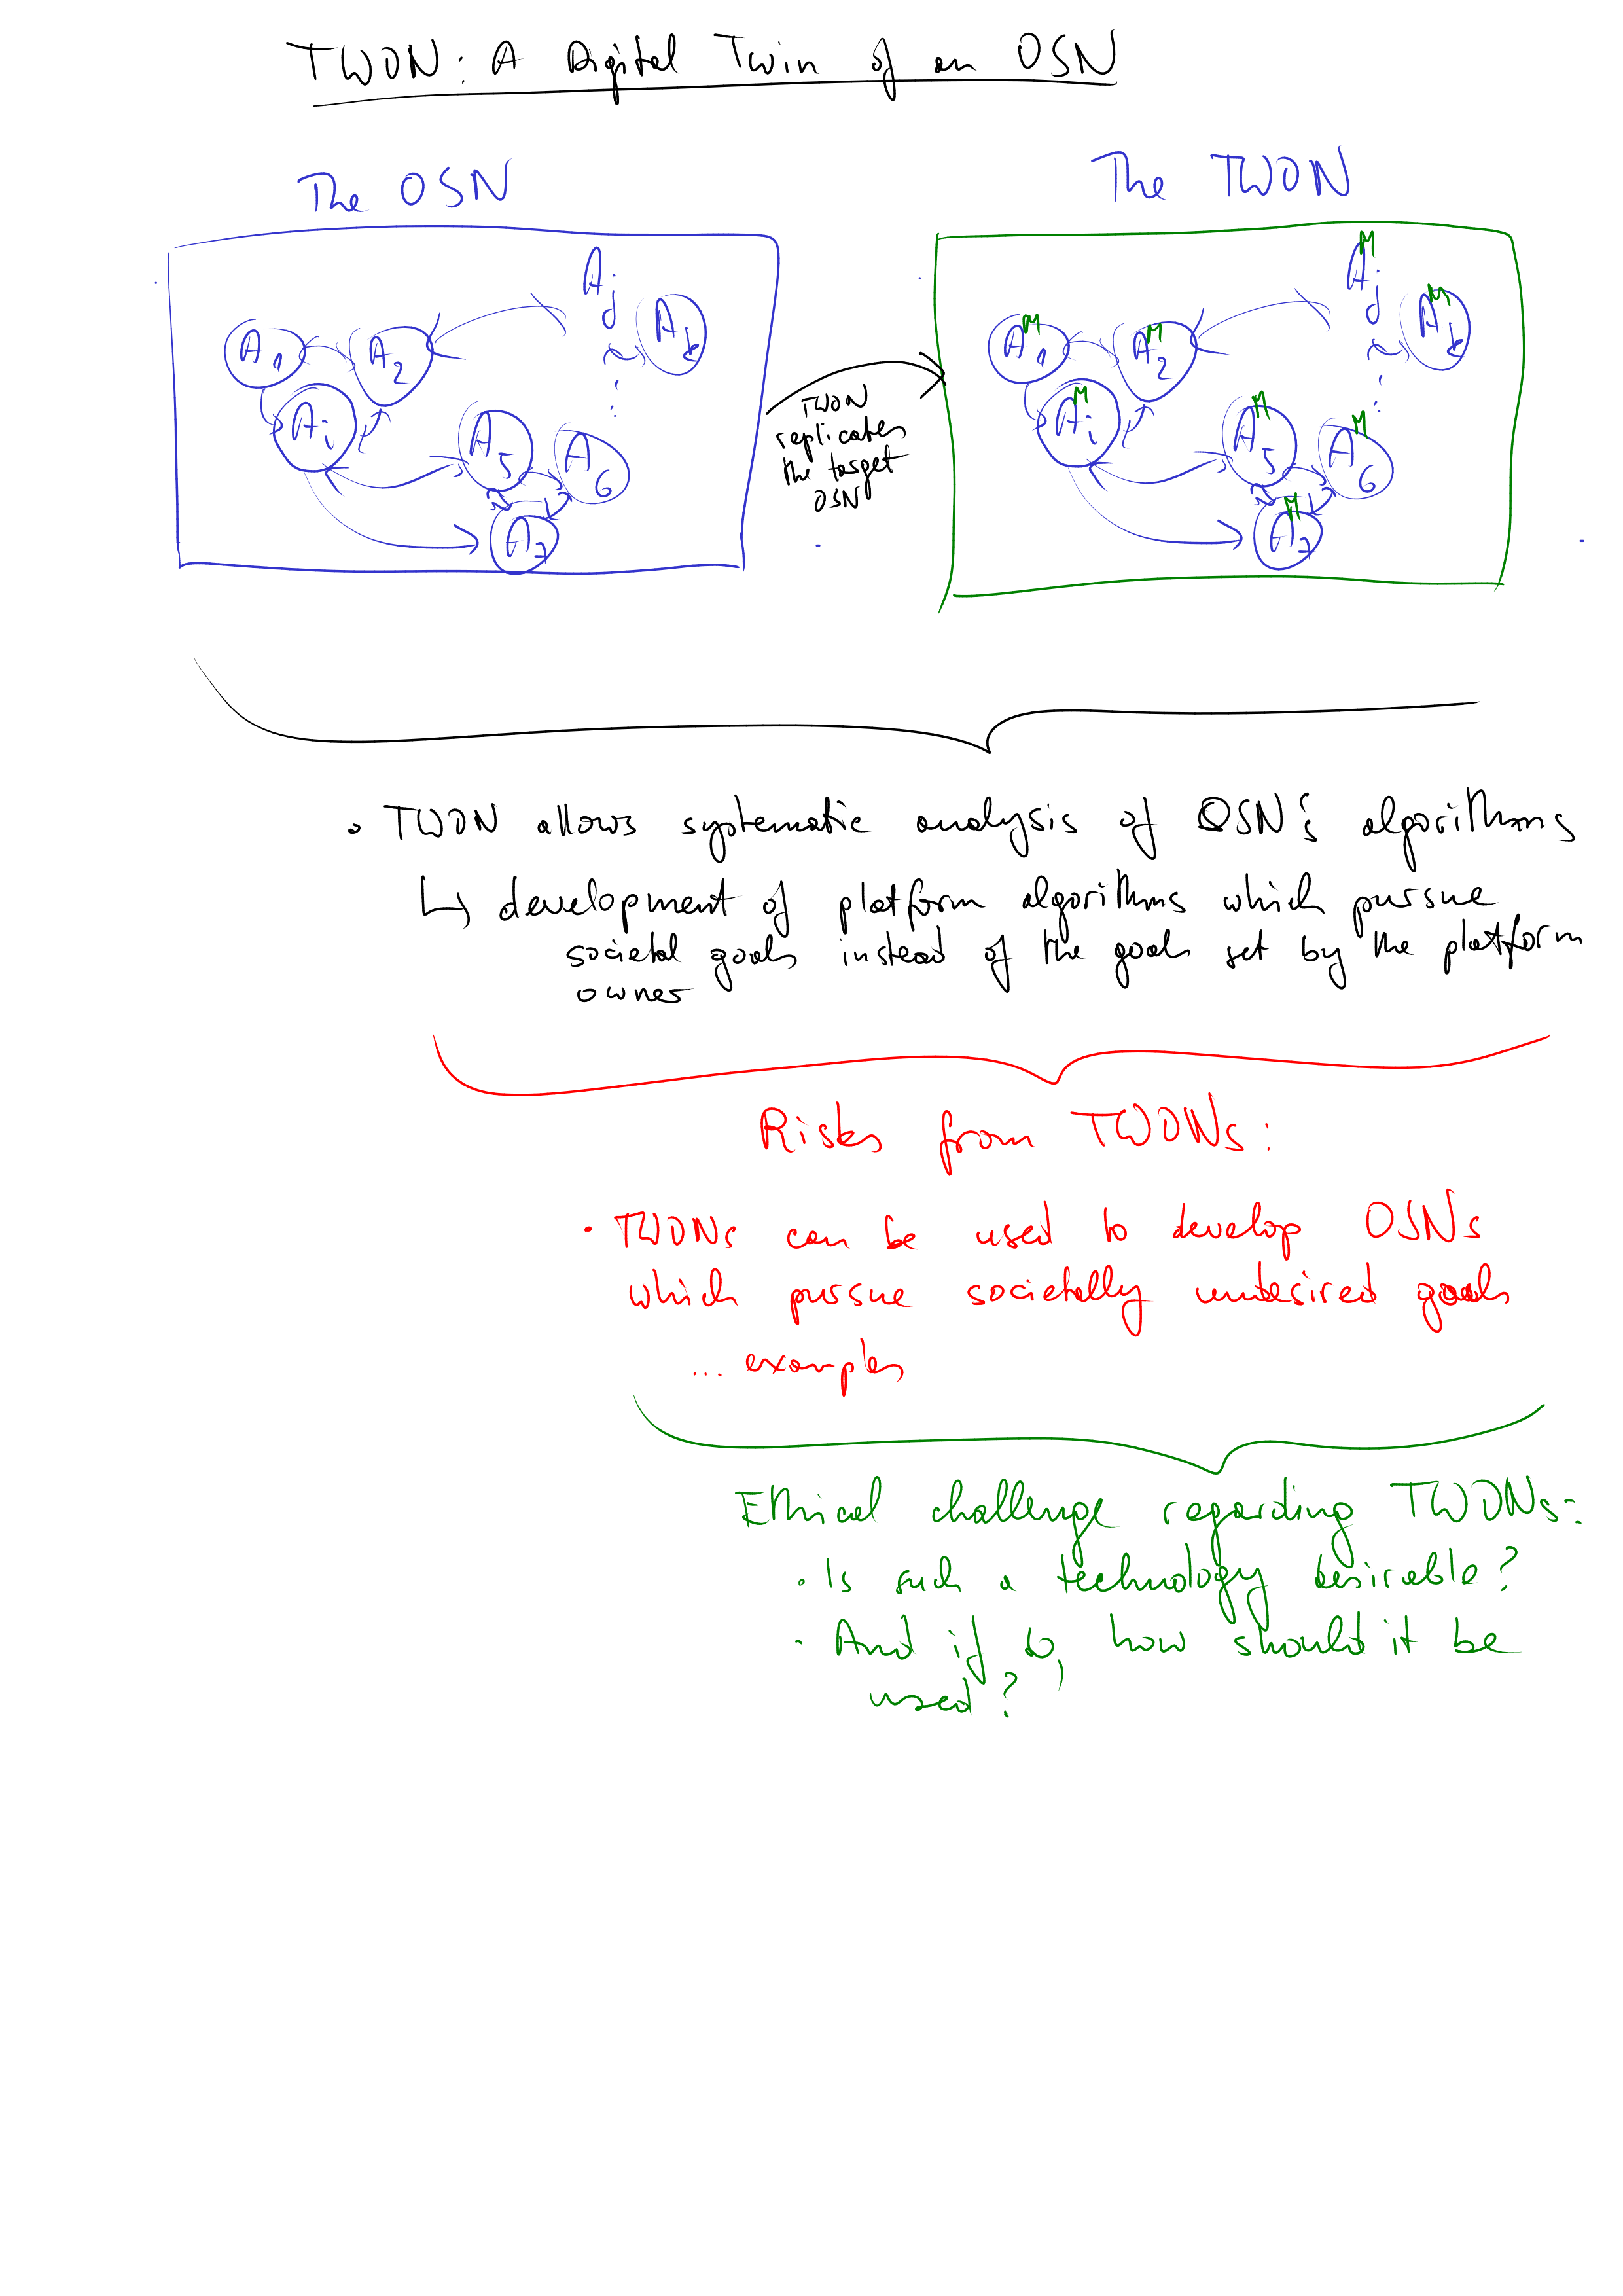 TWON: A Digital Twin of an OSN
The OSN
The TWON
A1
A2
Aj
Ak
Ai
A5
A6
A7
TWON
replicates
the target
OSN
A1^M
A2^M
Aj^M
Ak^M
Ai^M
A5^M
A6^M
A7^M
• TWON allows systematic analysis of OSN's algorithms
↳ development of platform algorithms which pursue
societal goals instead of the goals set by the platform
owner
Risks from TWONs:
• TWONs can be used to develop OSNs
which pursue societally undesired goals
... examples
Ethical challenge regarding TWONs:
• Is such a technology desirable?
• And if so, how should it be
used?